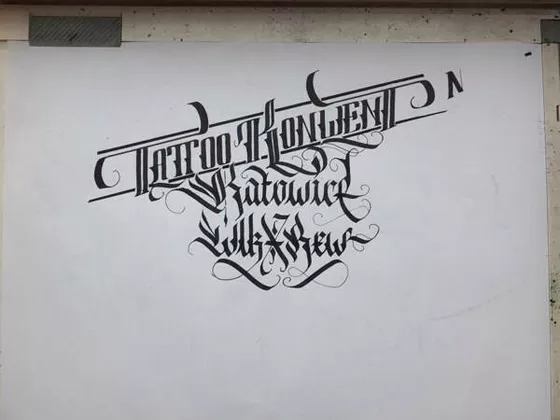 TATTOO KONWENT N
Katowice
SilkXRew